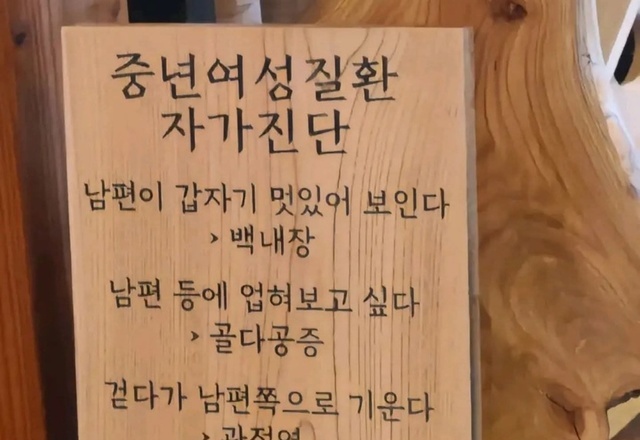 중년여성질환
자가진단
남편이 갑자기 멋있어 보인다
> 백내장
남편 등에 업혀보고 싶다
> 골다공증
걷다가 남편쪽으로 기운다